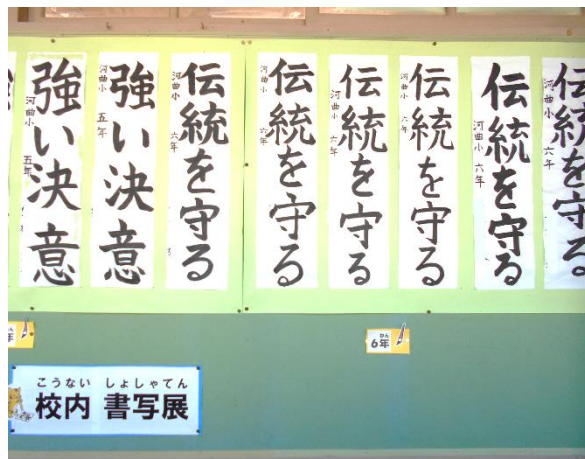 伝統を守る
河曲小 六年
伝統を守る
河曲小 六年
伝統を守る
河曲小 六年
伝統を守る
河曲小 六年
伝統を守る
河曲小 六年
伝統を守る
河曲小 六年
強い決意
河曲小 五年
強い決意
河曲小 五年
ねん
6年
年
こうない しょしゃてん
校内 書写展